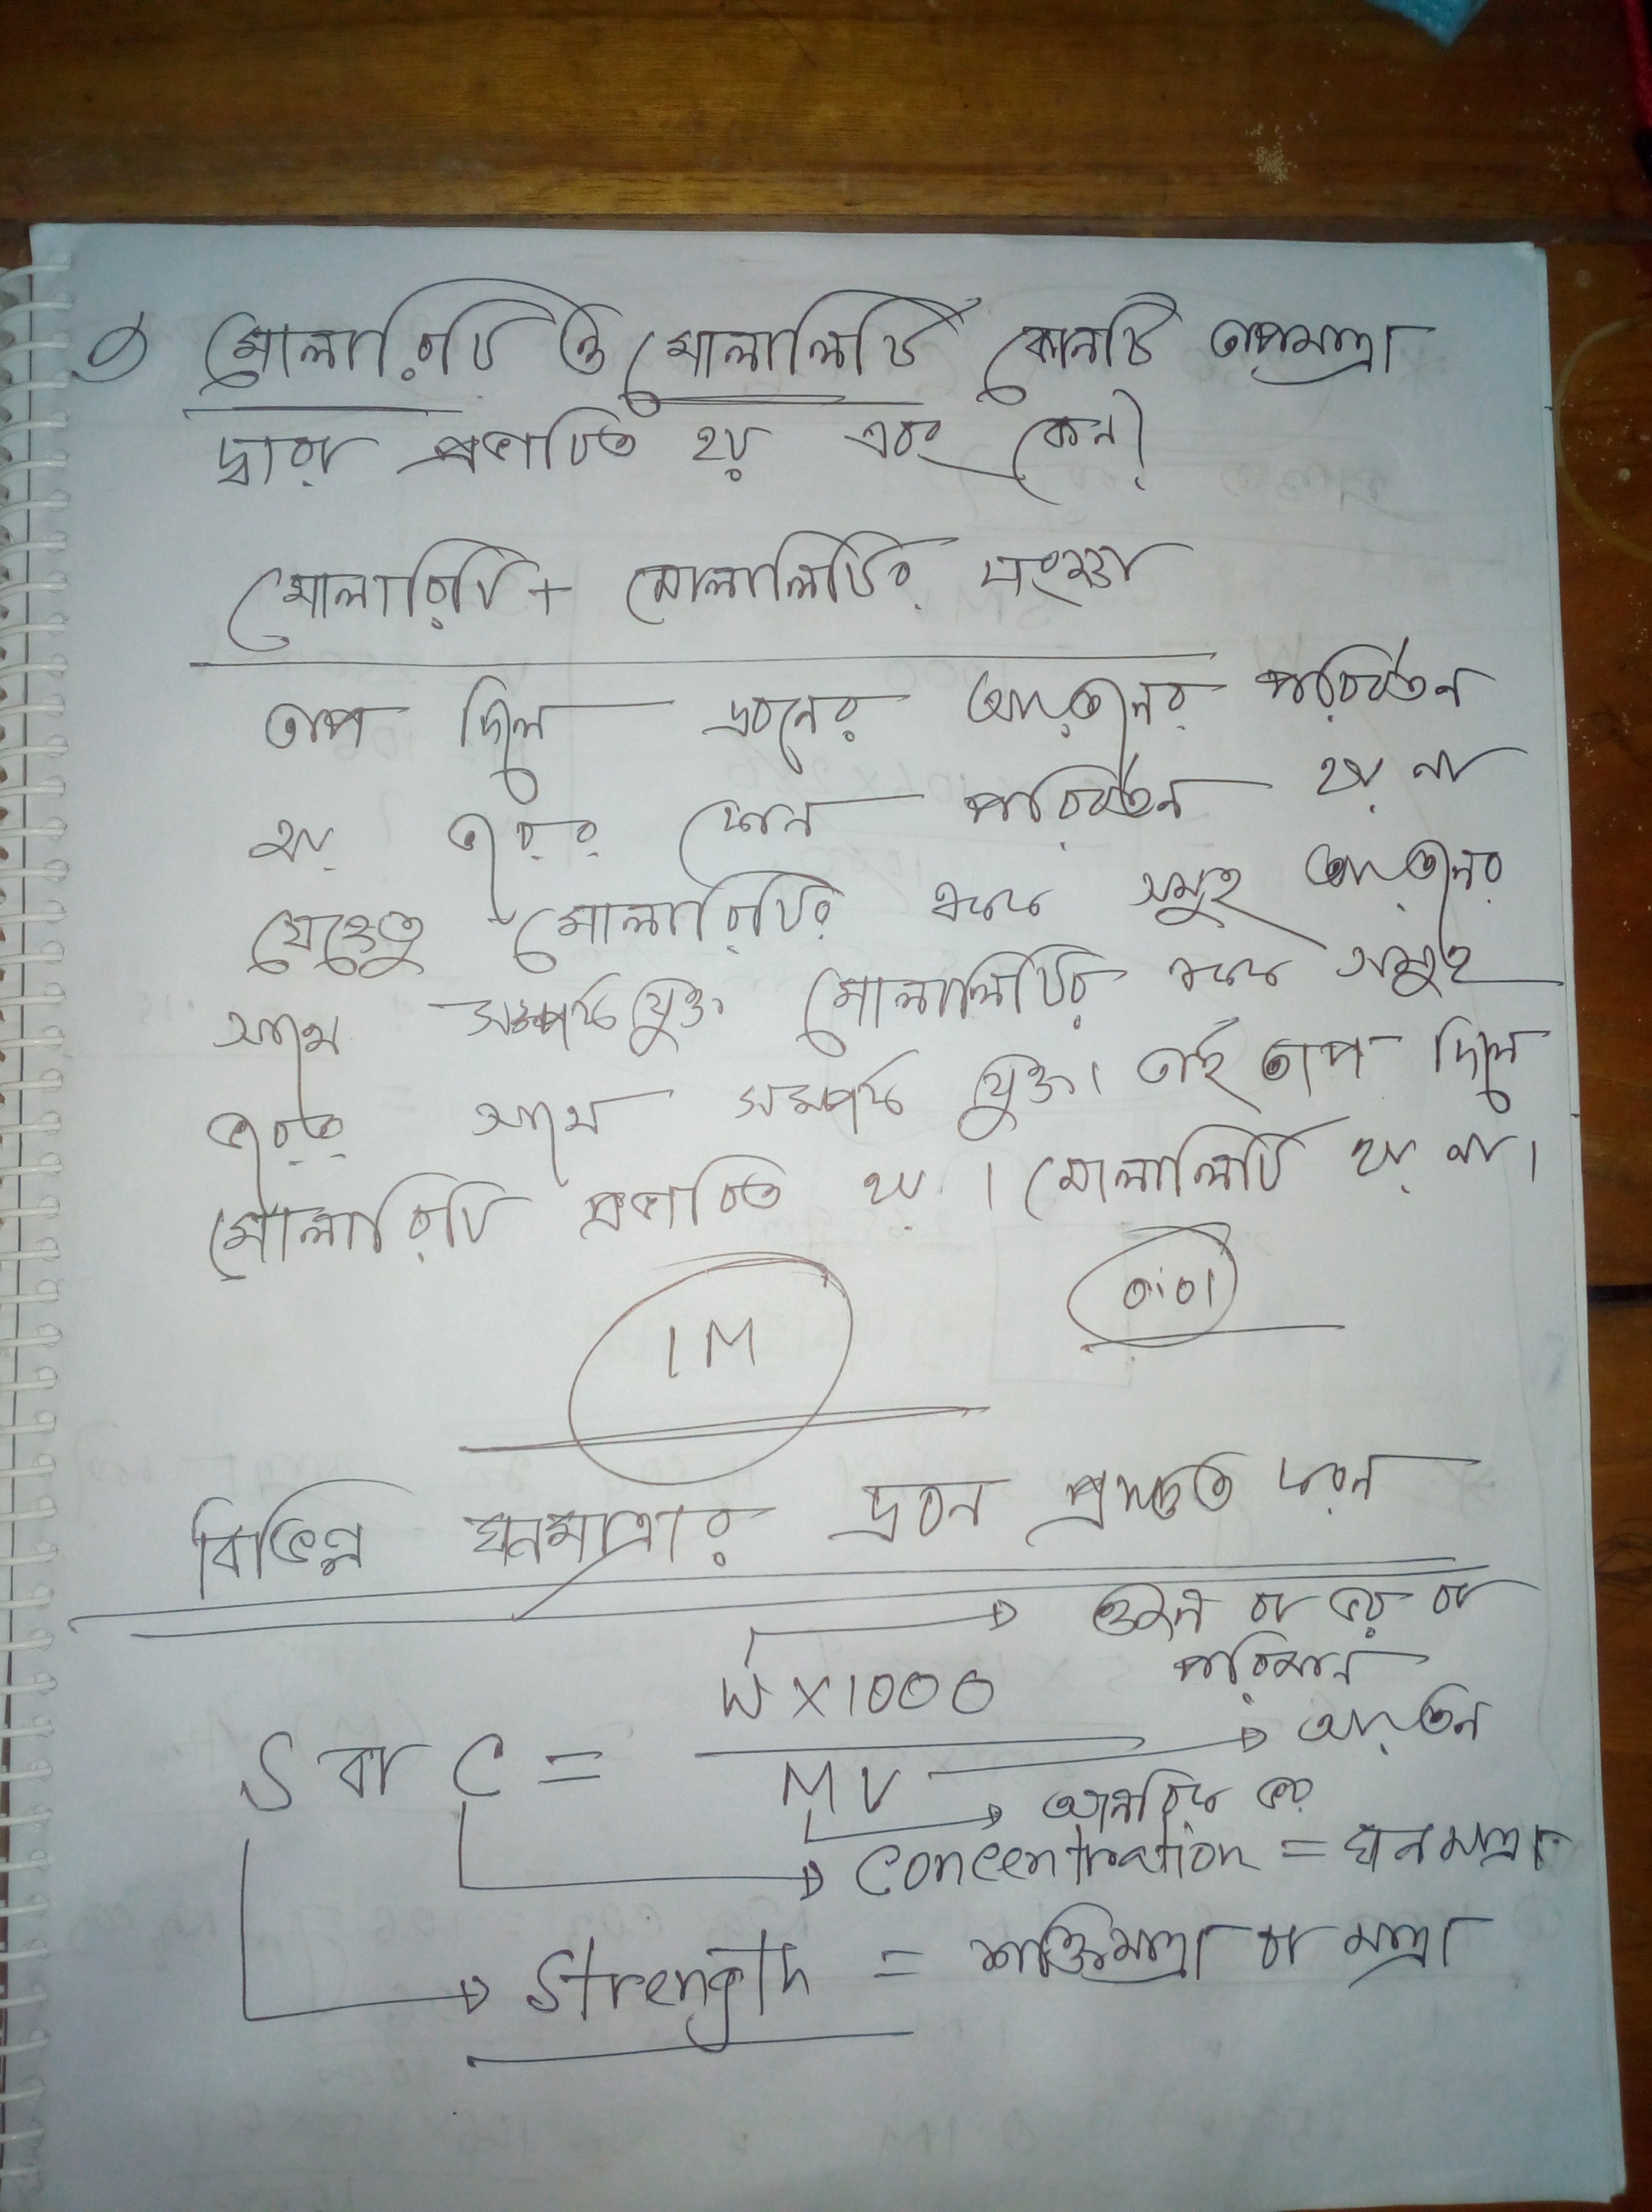 মোলারিটি ও মোলালিটি কোনটি তাপমাত্রা
দ্বারা প্রভাবিত হয় এবং কেন?
মোলারিটি + মোলালিটির সংজ্ঞা
তাপ দিলে দ্রবনের আয়তনের পরিবর্তন
হয় ভরের কোন পরিবর্তন হয় না
যেহেতু মোলারিটির একক সমুহ আয়তনের
সাথে সম্পর্কযুক্ত মোলালিটির একক সমুহ
ভরের সাথে সম্পর্ক যুক্ত। তাই তাপ দিলে
মোলারিটি প্রভাবিত হয়। মোলালিটি হয় না।
1M
0.01
বিভিন্ন ঘনমাত্রার দ্রবন প্রস্তুত করন
ওজন বা ভর বা
পরিমান
S বা C = W×1000 / MV
আয়তন
আনবিক ভর
Concentration = ঘনমাত্রা
Strength = শক্তিমাত্রা বা মাত্রা